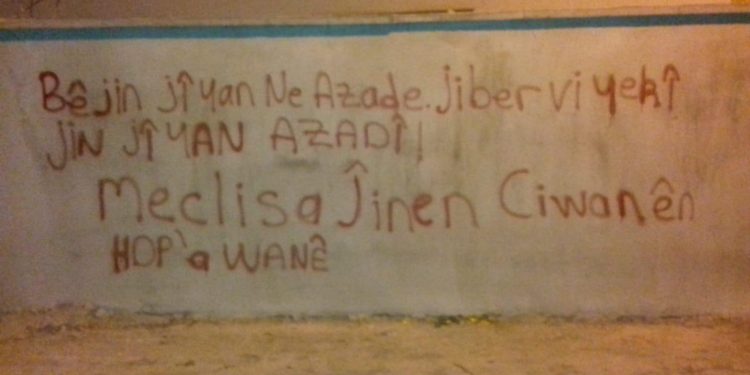 Bê jin jîyan Ne Azade. Jiber vi yekî
JiN JÎYAN AZADÎ!
Meclisa Ĵinen Ciwanên
HDP'a WANÊ